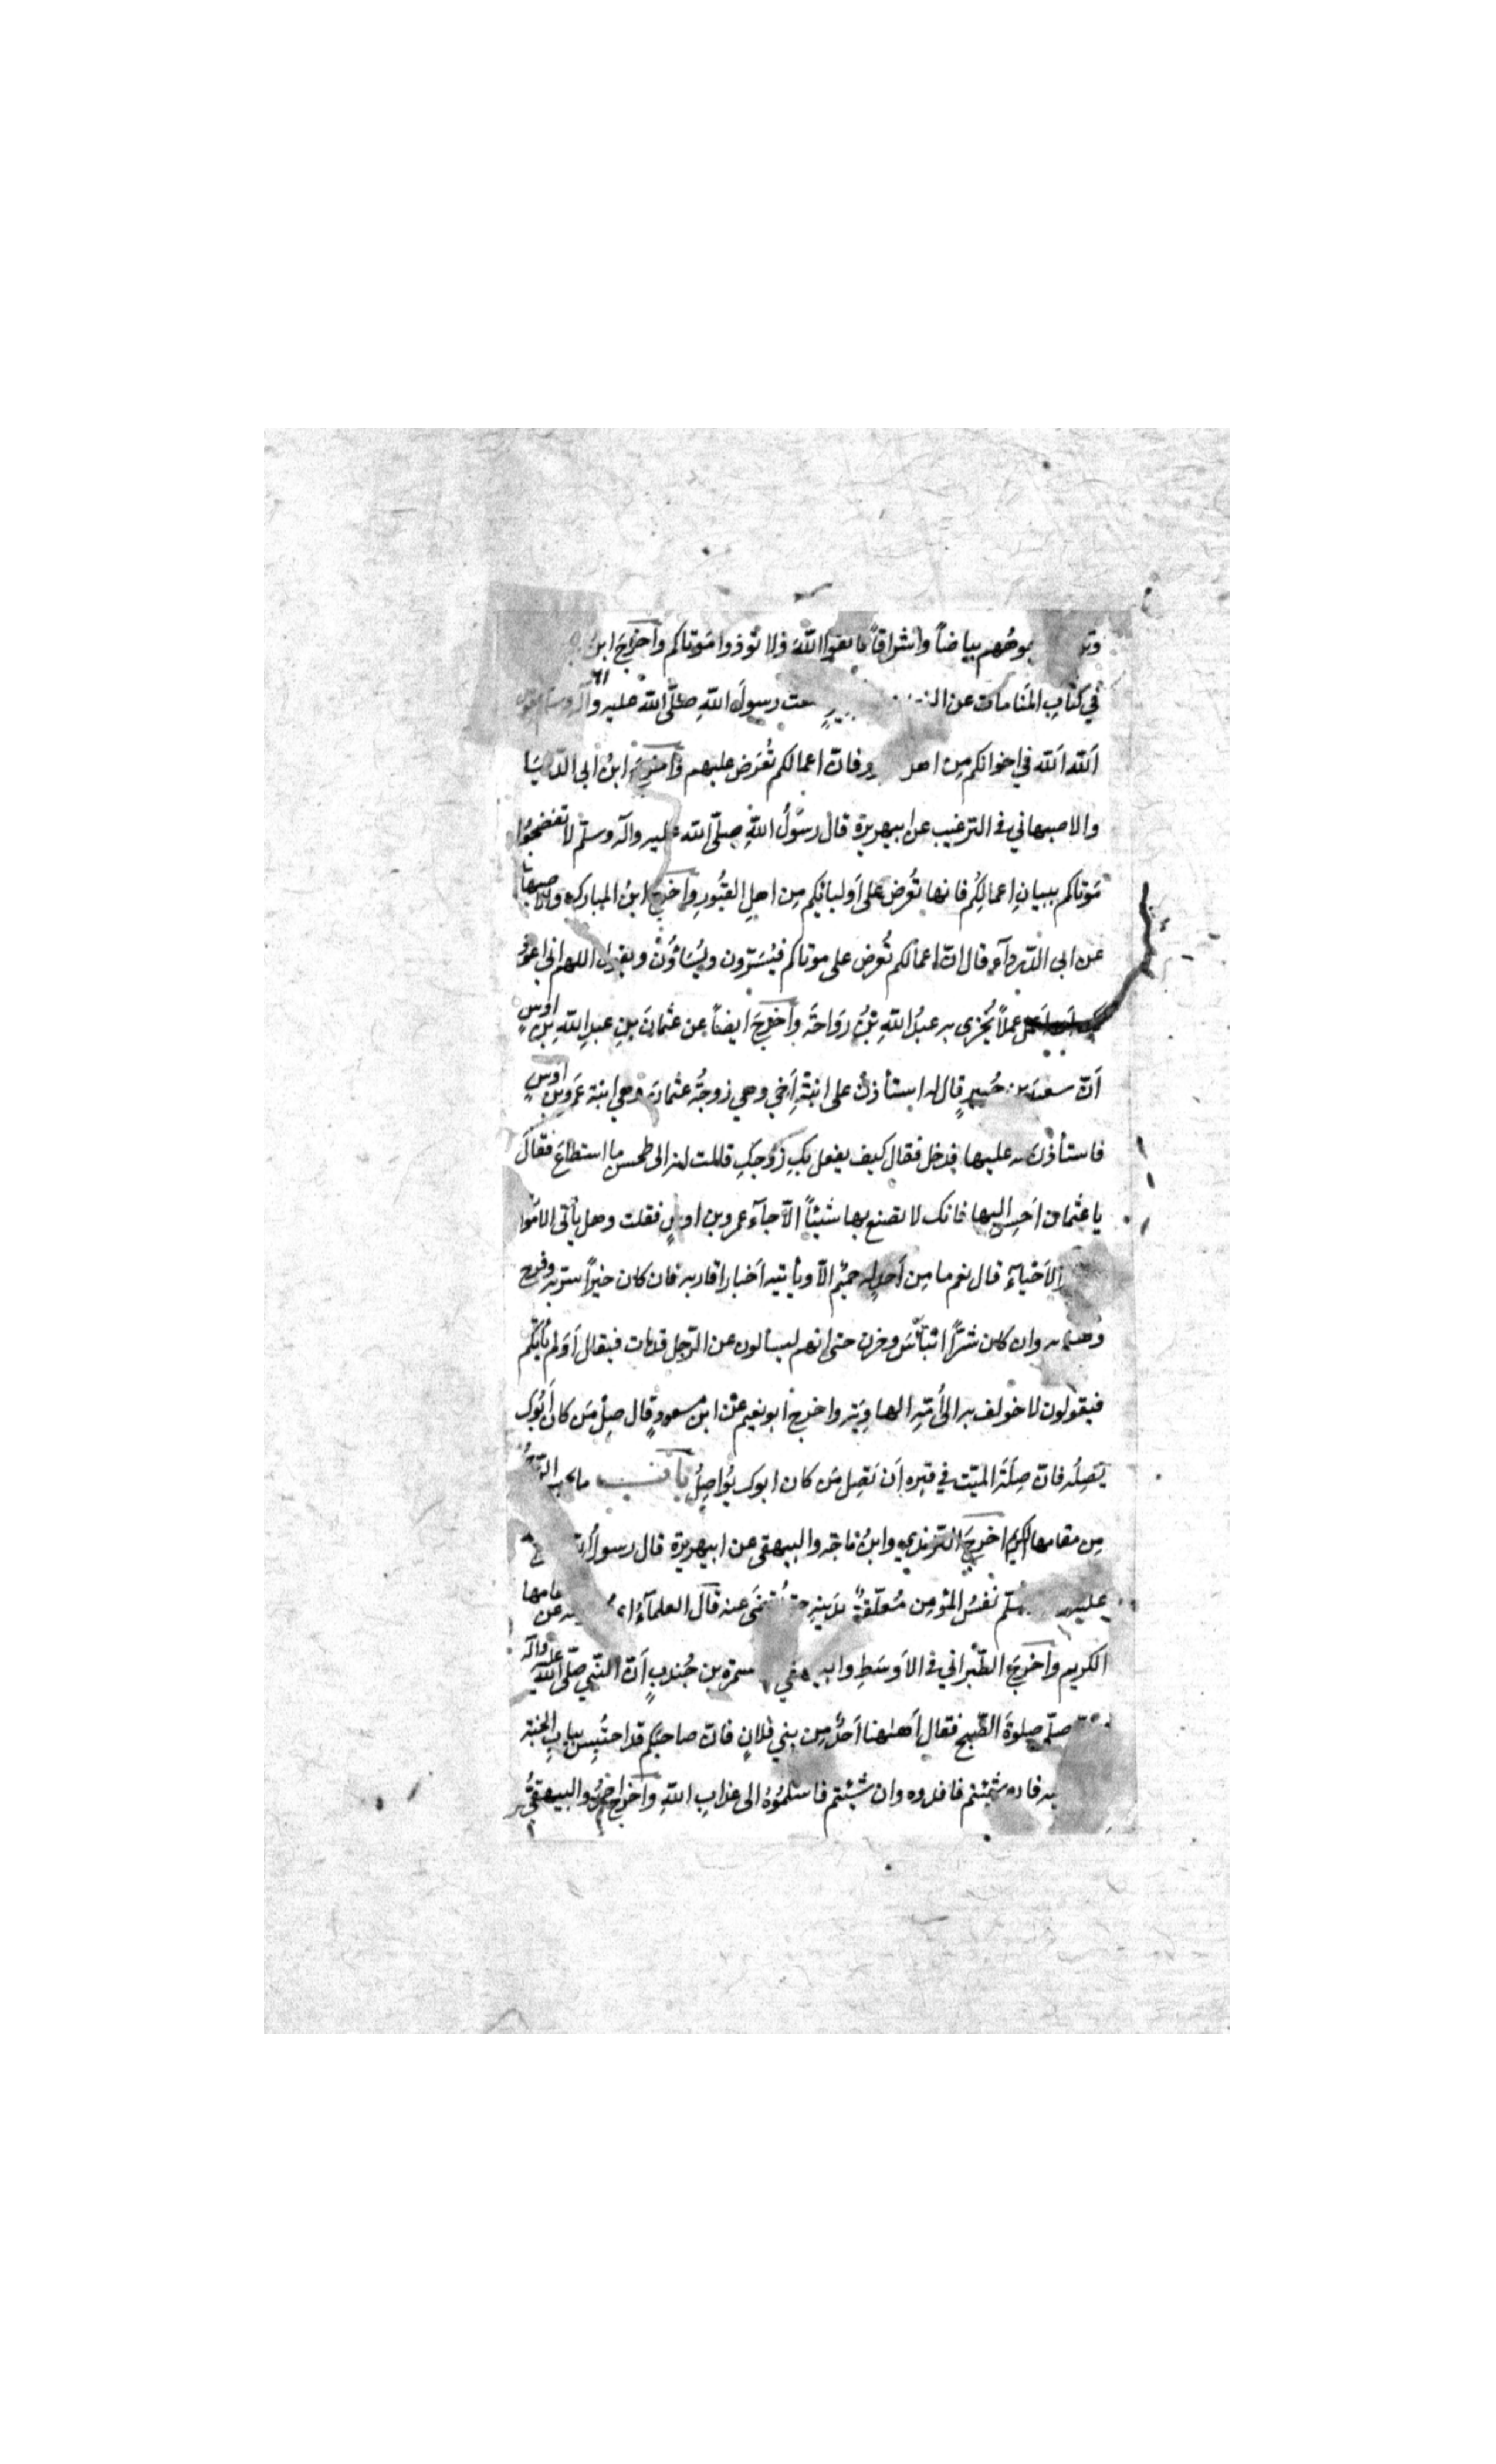 وتز وجوههم بياضاً واشراقاً فاتقوا الله ولا تؤذوا مَوتاكم وأخرَجَ ابنُ
في كتابِ المنامات عن سمعت رسولَ اللهِ صلّى الله عليه وآله وسلم يقول
اَلله اَلله في اِخوانكم مِن اهل القبور فانّ اعمالكم تُعرَض عليهم وأخرج ابنُ ابي الدّنيَا
والاصبهاني في الترغيب عن ابيهريرة قال رسُولُ اللهِ صلّى الله عليه وآله وسلّم لا تفضحُوا
مَوتاكم بسيئاتِ اعمالِكُم فانها تُعرَض على اَوليائكم مِن اهلِ القبُورِ وأخرج ابنُ المبارك والاصبهاني
عن ابي الدّرداءِ قال انّ اعمالكم تُعرَض على موتاكم فيُسَرّون ويُسَاؤُن ويقول اللهم اني اعوذ
بك اَن اَعمَل عملاً يُخزى به عبدُ اللهِ بْنُ رَوَاحَة وأخرجَ ايضاً عن عثمانَ بنِ عبدِ اللهِ بْنِ اوسٍ
اَنّ سعيدَ بن جُبيرٍ قال له استأذن على ابنَةِ اَخي وهي زوجَةُ عثمانَ وهي ابنة عَمروبن اوسٍ
فاستأذن له عليها فدخل فقال كيف يفعل بكِ زَوجكِ قالت انه الى لمحسن ما استطاعَ فقالَ
يا عثمان اَحسِن اليها فانك لا تصنع بها شيئاً الّا جاءَ عمروبن اوسٍ فقلت وهل يأتى الامَوا
الاَخياءِ قال نعم ما مِن اَحدٍ له حميم الّا ويأتيه اَخبار اقاربه فان كان خيراً سرّ به وفرح
وهنأ به وان كان شرّاً ابتأس وحزن حتى انهم ليسألون عن الرّجل قد مات فيقال اَوَلم يأتِكُم
فيقولون لا خولف به الى اُمّهِ الهاوِيَة واخرج ابونعيم عن ابن مسعودٍ قال صِلْ مَن كان اَبُوك
يَصِلُه فانّ صِلَة الميّت في قبرِه اَن تَصِل مَن كان ابوك يُوَاصِلُ بابُ ما يحبس الرّوحُ
مِن مقامها الكريم اخرجَ الترمذي وابنُ ماجَه والبيهقى عن ابيهريرة قال رسولُ الله
عليه وسلّم نفسُ المُؤمِن مُعلّقةٌ بدَينِه حتّى يُقضَى عنه قال العلماءُ عن مقامها
الكريم وأخرجَ الطّبراني في الاَوسَطِ والبيهقي سمرة بن جُندبٍ اَنّ النّبي صلّى الله عليه وآله
صلّى صلوةَ الصّبح فقال اَههُنا اَحدٌ مِن بني فلانٍ فانّ صاحبَكم قد احتُبِس ببابِ الجنّة
به فان شئتم فافدوه وان شئتم فاسلمُوهُ الى عذابِ اللهِ وأخرج والبيهقيُّ